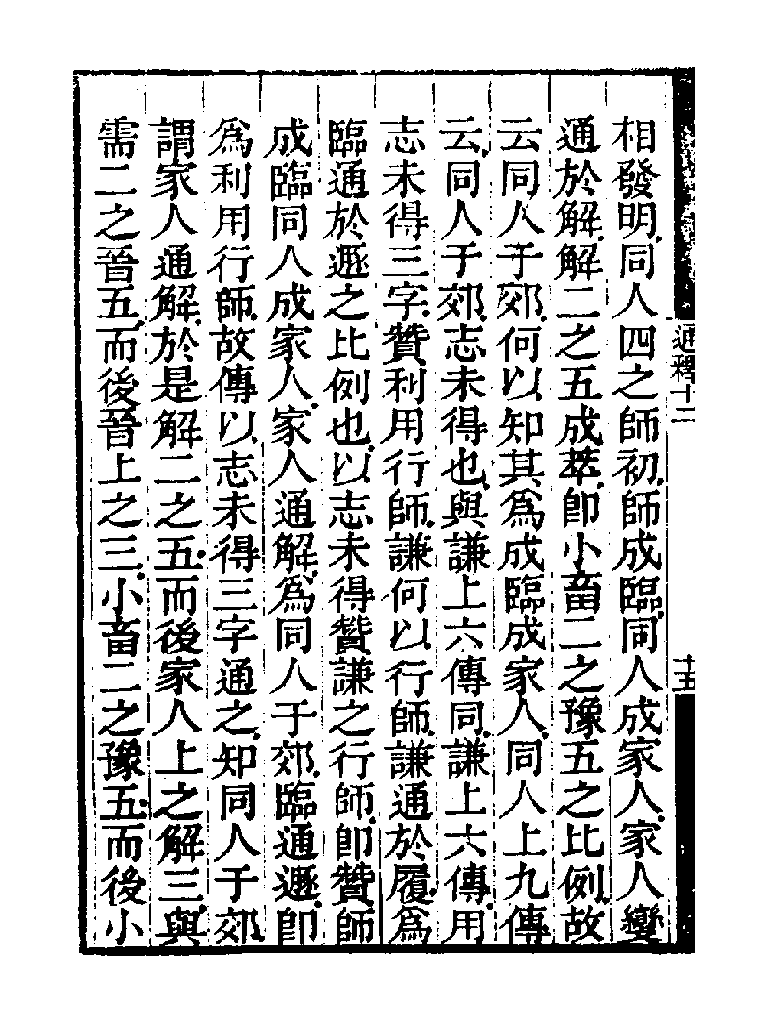 相發明同人四之師初師成臨同人成家人家人變
通於解解二之五成萃卽小畜二之豫五之比例故
云同人于郊何以知其爲成臨成家人同人上九傳
云同人于郊志未得也與謙上六傳同謙上六傳用
志未得三字贊利用行師謙何以行師謙通於履爲
臨通於遯之比例也以志未得贊謙之行師卽贊師
成臨同人成家人家人通解爲同人于郊臨通遯卽
爲利用行師故傳以志未得三字通之知同人于郊
謂家人通解於是解二之五而後家人上之解三與
需二之晉五而後晉上之三小畜二之豫五而後小
通釋十二
十五